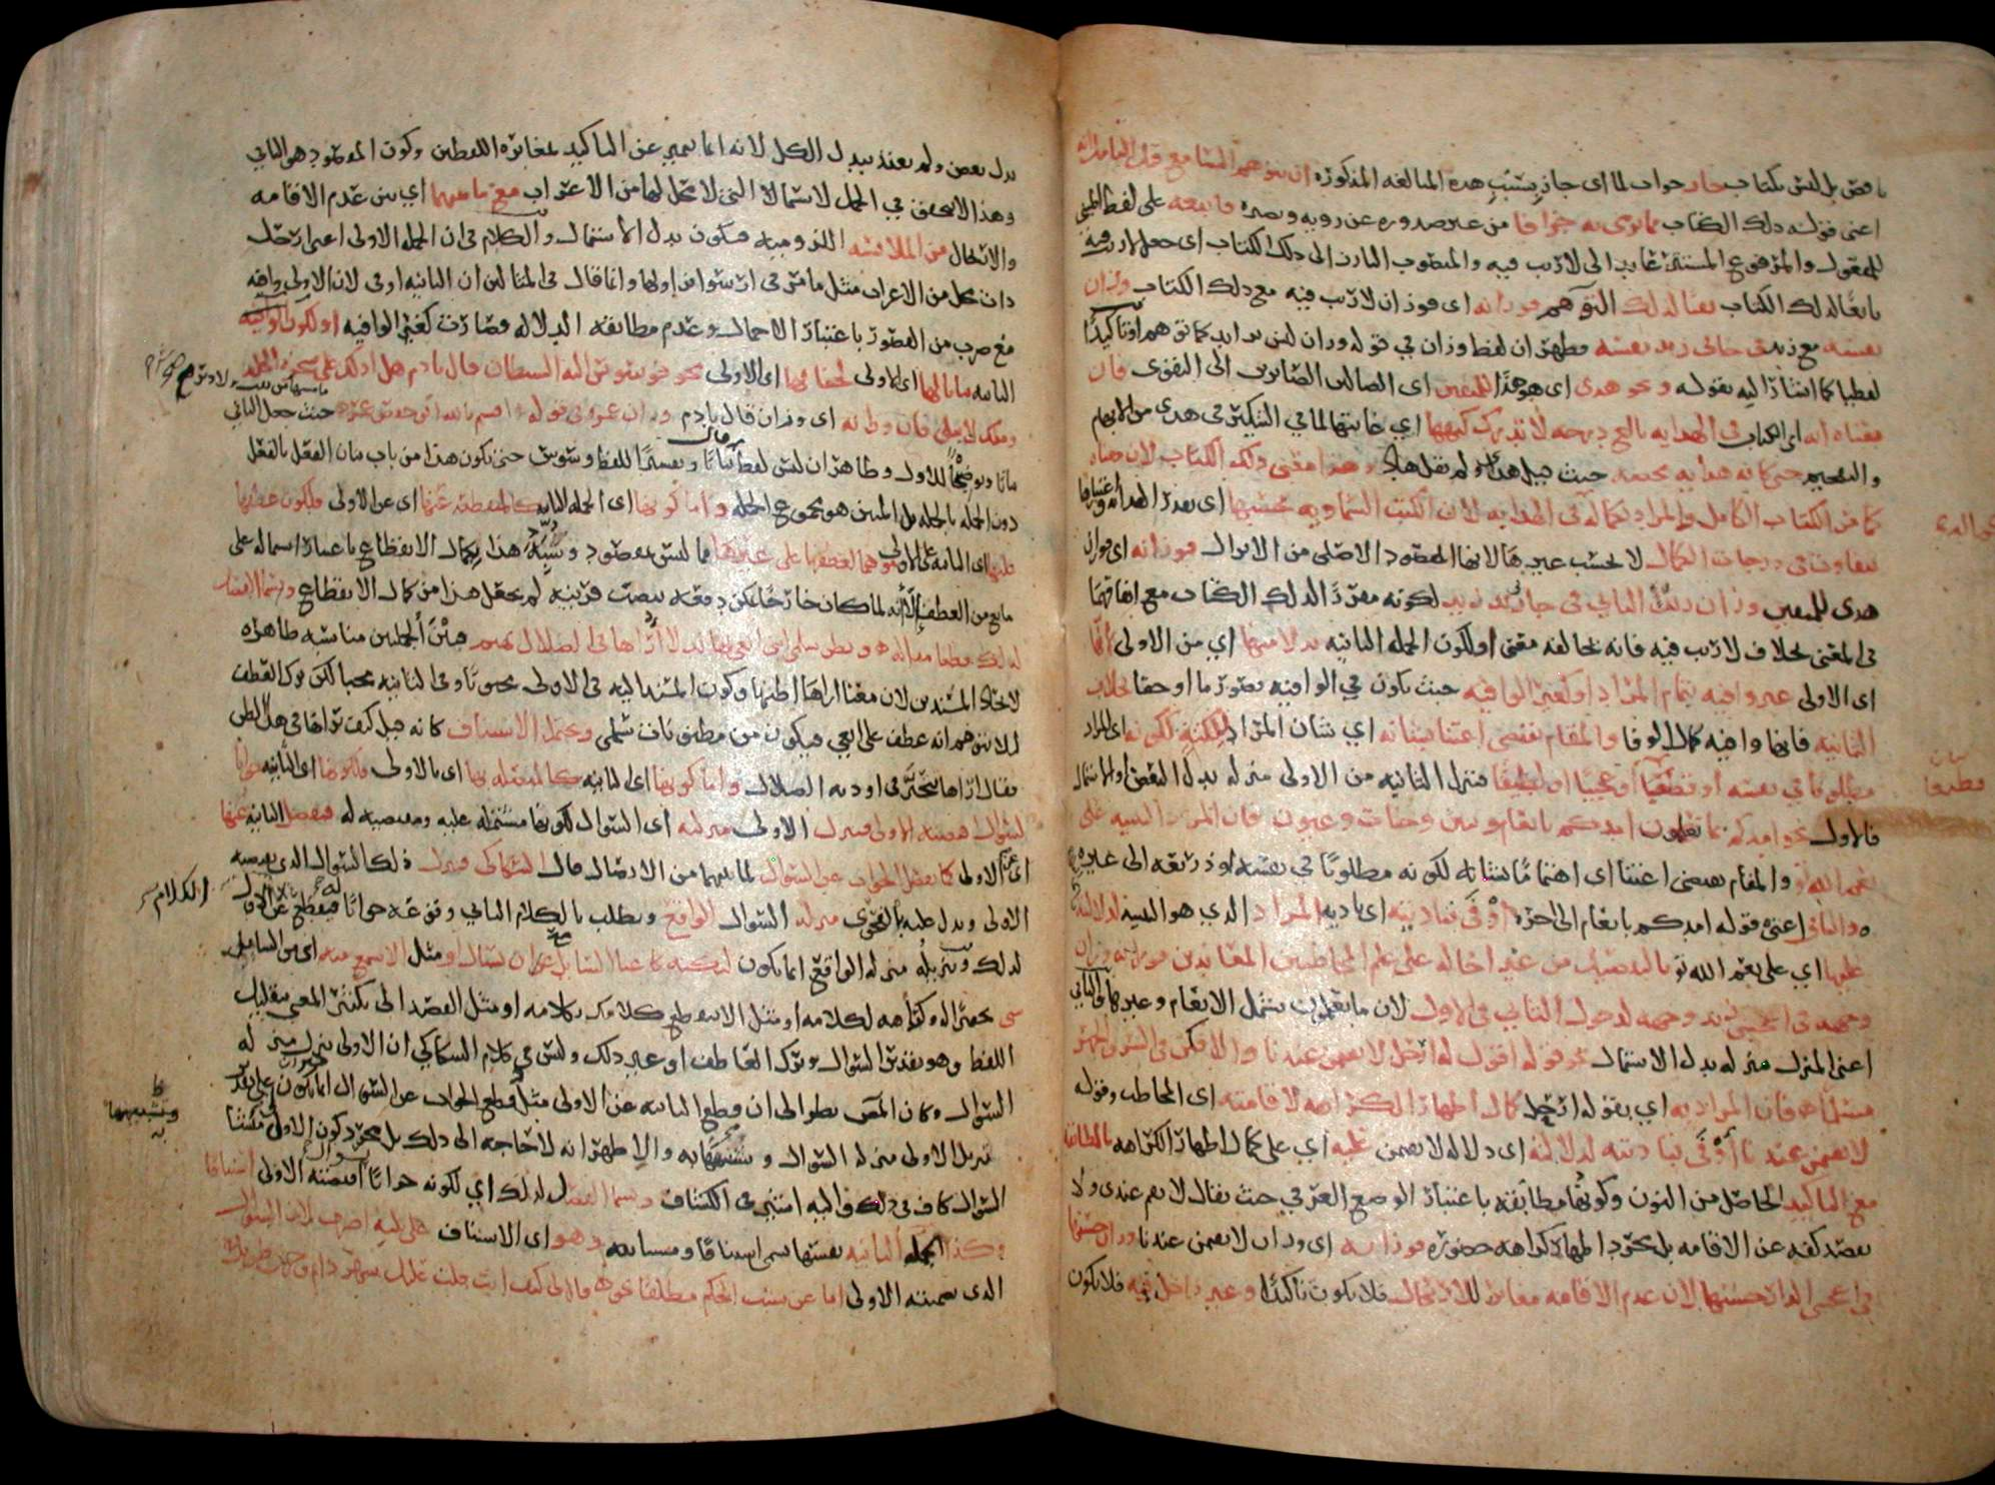 ناقص بل ليس بكتاب جاز جواب لما اى جاز بسبب هذه المبالغه المذكوره ان يتوهم السامع قبل التامل انه
اعنى قوله ذلك الكتاب مما يرمى به جزافا من غير صدوره عن رويه وبصيره فاتبعه على لفظ المبنى
للمفعول والمرفوع المستتر عايد الى لا ريب فيه والمنصوب البارز الى ذلك الكتاب اى جعل لا ريب فيه
تابعا لذلك الكتاب نفيا لذلك التوهم فوزانه اى فوزان لا ريب فيه مع ذلك الكتاب وزان
نفسه مع زيد فى جانى زيد نفسه فظهر ان لفظ وزان في قوله وزان ليس بزايد كما توهم او تاكيدا
لفظيا كما اشار اليه بقوله ونحو هدى اى هو هدى للمتقين اى الضالين الصايرين الى التقوى فان
معناه انه اى الكتاب فى الهدايه بالغ درجه لا يدرك كنهها اي غايتها لما في التنكير فى هدى من الابهام
والتفخيم حتى كانه هدايه محضه حيث قيل هدى ولم يقل هاد وهذا معنى ذلك الكتاب لان معناه
كما مر الكتاب الكامل والمراد بكماله فى الهدايه لان الكتب السماويه بحسبها اى بقدر الهدايه واعتبارها
تتفاوت فى درجات الكمال لا بحسب غيرها لانها المقصود الاصلى من الانزال فوزانه اى وزان
هدى للمتقين وزان زيد الثاني فى جانى زيد زيد لكونه مقررا لذلك الكتاب مع اتفاقهما
فى المعنى بخلاف لا ريب فيه فانه يخالفه معنى او لكون الجمله الثانيه بدلا منها اي من الاولى لانها
اى الاولى غير وافيه بتمام المراد او كغير الوافيه حيث يكون في الوافيه قصور ما او خفا بخلاف
الثانيه فانها وافيه كمال الوفا والمقام يقتضى اعتنا بشانه اي بشان المراد لنكته ككونه اى المراد
مطلوبا في نفسه او فظيعا او عجيبا او لطيفا فتنزل الثانيه من الاولى منزله بدل البعض او الاشتمال
فالاول نحو امدكم بما تعلمون امدكم بانعام وبنين وجنات وعيون فان المراد التنبيه على
نعم الله تع والمقام يقتضى اعتنا اى اهتماما بشانه لكونه مطلوبا في نفسه او ذريعه الى غيره
والثانى اعنى قوله امدكم بانعام الى اخره اوفى بتاديته اى تاديه المراد الذي هو التنبيه لدلالته
عليها اي على نعم الله تع بالتفصيل من غير احاله على علم المخاطبين المعاندين فوزانه وزان
وجهه فى اعجبنى زيد وجهه لدخول الثانى فى الاول لان ما تعلمون يشمل الانعام وغيرها والثاني
اعنى المنزل منزله بدل الاشتمال نحو قوله اقول له ارحل لا تقيمن عندنا والا فكن فى السر والجهر
مسلما فان المراد به اي بقوله ارحل كمال اظهار الكراهه لاقامته اى المخاطب وقوله
لا تقيمن عندنا اوفى بتاديته لدلالته اى دلاله لا تقيمن عليه اي على كمال اظهار الكراهه بالمطابقه
مع التاكيد الحاصل من النون وكونها مطابقه باعتبار الوضع العرفي حيث يقال لا تقم عندى ولا
يقصد كفه عن الاقامه بل مجرد اظهار كراهه حضوره فوزانه اى وزان لا تقيمن عندنا وزان حسنها
فى اعجبنى الدار حسنها لان عدم الاقامه مغاير للارتحال فلا يكون تاكيدا وغير داخل فيه فلا يكون
بيان
فظيعا
بدل بعض ولم يعتد ببدل الكل لانه انما يتميز عن التاكيد بمغايره اللفظين وكون المقصود هو الثاني
وهذا لا يتحقق في الجمل لا سيما التى لا محل لها من الاعراب مع ما بينهما اي بين عدم الاقامه
والارتحال من الملابسه اللزوميه فيكون بدل الاشتمال والكلام فى ان الجمله الاولى اعنى ارحل
ذات محل من الاعراب مثل ما مر فى ارسوا نزاولها وانما قال فى المثالين ان الثانيه اوفى لان الاولى وافيه
مع ضرب من القصور باعتبار الاجمال وعدم مطابقه الدلاله فصارت كغير الوافيه او لكون الثانيه
الثانيه بيانا لها اى للاولى لخفائها اى الاولى نحو فوسوس اليه الشيطان قال يادم هل ادلك على شجره الخلد
وملك لا يبلى فان وزانه اى وزان قال يادم وزان عمر فى قوله اقسم بالله ابو حفص عمر حيث جعل الثاني
بيانا وتوضيحا للاول وظاهر ان ليس لفظ قال بيانا وتفسيرا للفظ وسوس حتى يكون هذا من باب بيان الفعل بالفعل
دون الجمله بالجمله بل المبين هو مجموع الجمله واما كونها اى الجمله الثانيه كالمنقطعه عنها اى عن الاولى فلكون عطفها
عليها اى الثانيه على الاولى موهما لعطفها على غيرها مما ليس بمقصود وشبه هذا بكمال الانقطاع باعتبار اشتماله على
مانع من العطف الا انه لما كان خارجا يمكن دفعه بنصب قرينه لم يجعل هذا من كمال الانقطاع ويسمى الفصل
لذلك قطعا مثاله وتظن سلمى اننى ابغى بها بدلا اراها فى الضلال تهيم فبين الجملتين مناسبه ظاهره
لاتحاد المسندين لان معنى اراها اظنها وكون المسند اليه فى الاولى محبوبا وفى الثانيه محبا لكن ترك العطف
لئلا يتوهم انه عطف على ابغي فيكون من مظنونات سلمى ويحتمل الاستيناف كانه قيل كيف تراها فى هذا الظن
فقال اراها تتحير فى اوديه الضلال واما كونها اى الثانيه كالمتصله بها اى بالاولى فلكونها اى الثانيه جوابا
لسوال اقتضته الاولى فتنزل الاولى منزلته اى السوال لكونها مشتمله عليه ومقتضيه له فتفصل الثانيه عنها
اى عن الاولى كما يفصل الجواب عن السوال لما بينهما من الاتصال قال السكاكى فينزل ذلك السوال الذى تقتضيه
الاولى ويدل عليه بالفحوى منزله السوال الواقع ويطلب بالكلام الثاني وقوعه جوابا له فيقطع عن الكلام الاول
لذلك وتنزيله منزله الواقع انما يكون لنكته كاغنا السامع عن ان يسال او مثل ان لا يسمع منه اى من السامع
شى تحقيرا له وكراهه لكلامه او مثل ان لا ينقطع كلامك بكلامه او مثل القصد الى تكثير المعنى بتقليل
اللفظ وهو تقدير السوال وترك العاطف او غير ذلك وليس في كلام السكاكي ان الاولى تنزل منزله
السوال وكان المص نظر الى ان قطع الثانيه عن الاولى مثل قطع الجواب عن السوال انما يكون على تقدير
تنزيل الاولى منزله السوال وتشبيهها به والاظهر انه لا حاجه الى ذلك بل مجرد كون الاولى منشا
السوال كاف فى ذلك واليه اشير فى الكشاف ويسمى الفصل لذلك اي لكونه جوابا لسوال اقتضته الاولى استينافا
وكذا الجمله الثانيه نفسها تسمى استينافا ومستانفه وهو اى الاستيناف على ثلثه اضرب لان السوال
الذى تضمنته الاولى اما عن سبب الحكم مطلقا نحو قال لى كيف انت قلت عليل سهر دايم وحزن طويل
الكلام
وتشبيهها
به